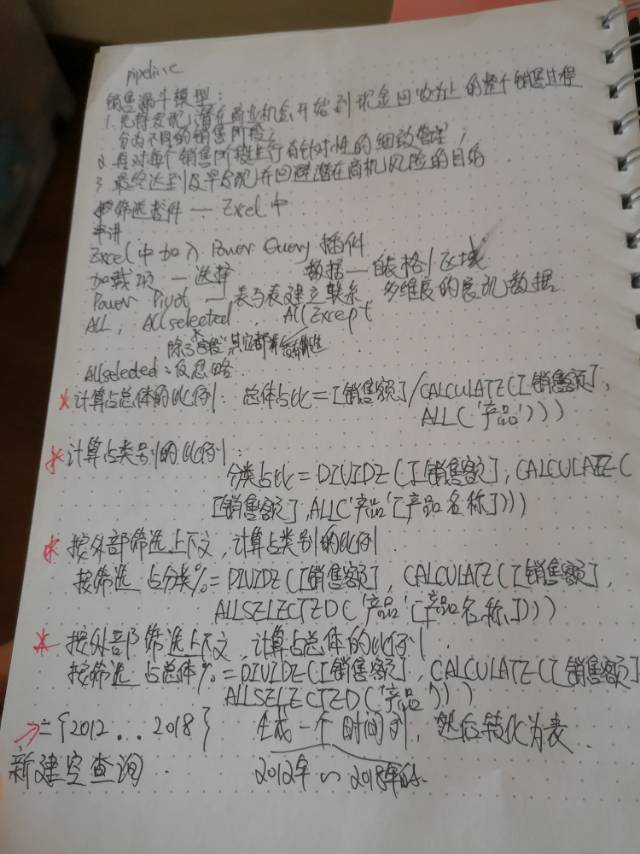 pipeline
销售漏斗模型:
1. 先将发现潜在商业机会开始到现金回收为止的整个销售过程
分为不同的销售阶段;
2. 再对每个销售阶段进行有针对性的细致管理;
3. 最终达到及早发现并回避潜在商机风险的目的
筛选控件 — Excel中
Excel中加入 Power Query 插件
加载项 — 选择 数据 — 自表格/区域
Power Pivot — 表与表建立联系 多维度的展现数据
ALL, Allselected, AllExcept
Allselected: 仅忽略
* 计算占总体的比例: 总体占比=[销售额]/CALCULATE([销售额],
ALL('产品')))
* 计算占类别的比例:
分类占比=DIVIDE([销售额],CALCULATE(
[销售额],ALL('产品'[产品名称])))
* 按外部筛选上下文, 计算占类别的比例
按筛选 占分类%=DIVIDE([销售额], CALCULATE([销售额],
ALLSELECTED('产品'[产品名称]))
* 按外部筛选上下文, 计算占总体的比例
按筛选 占总体%=DIVIDE([销售额], CALCULATE([销售额],
ALLSELECTED('产品')))
={2012...2018} 生成一个时间列, 然后转化为表
新建空查询 2012年~2018年的